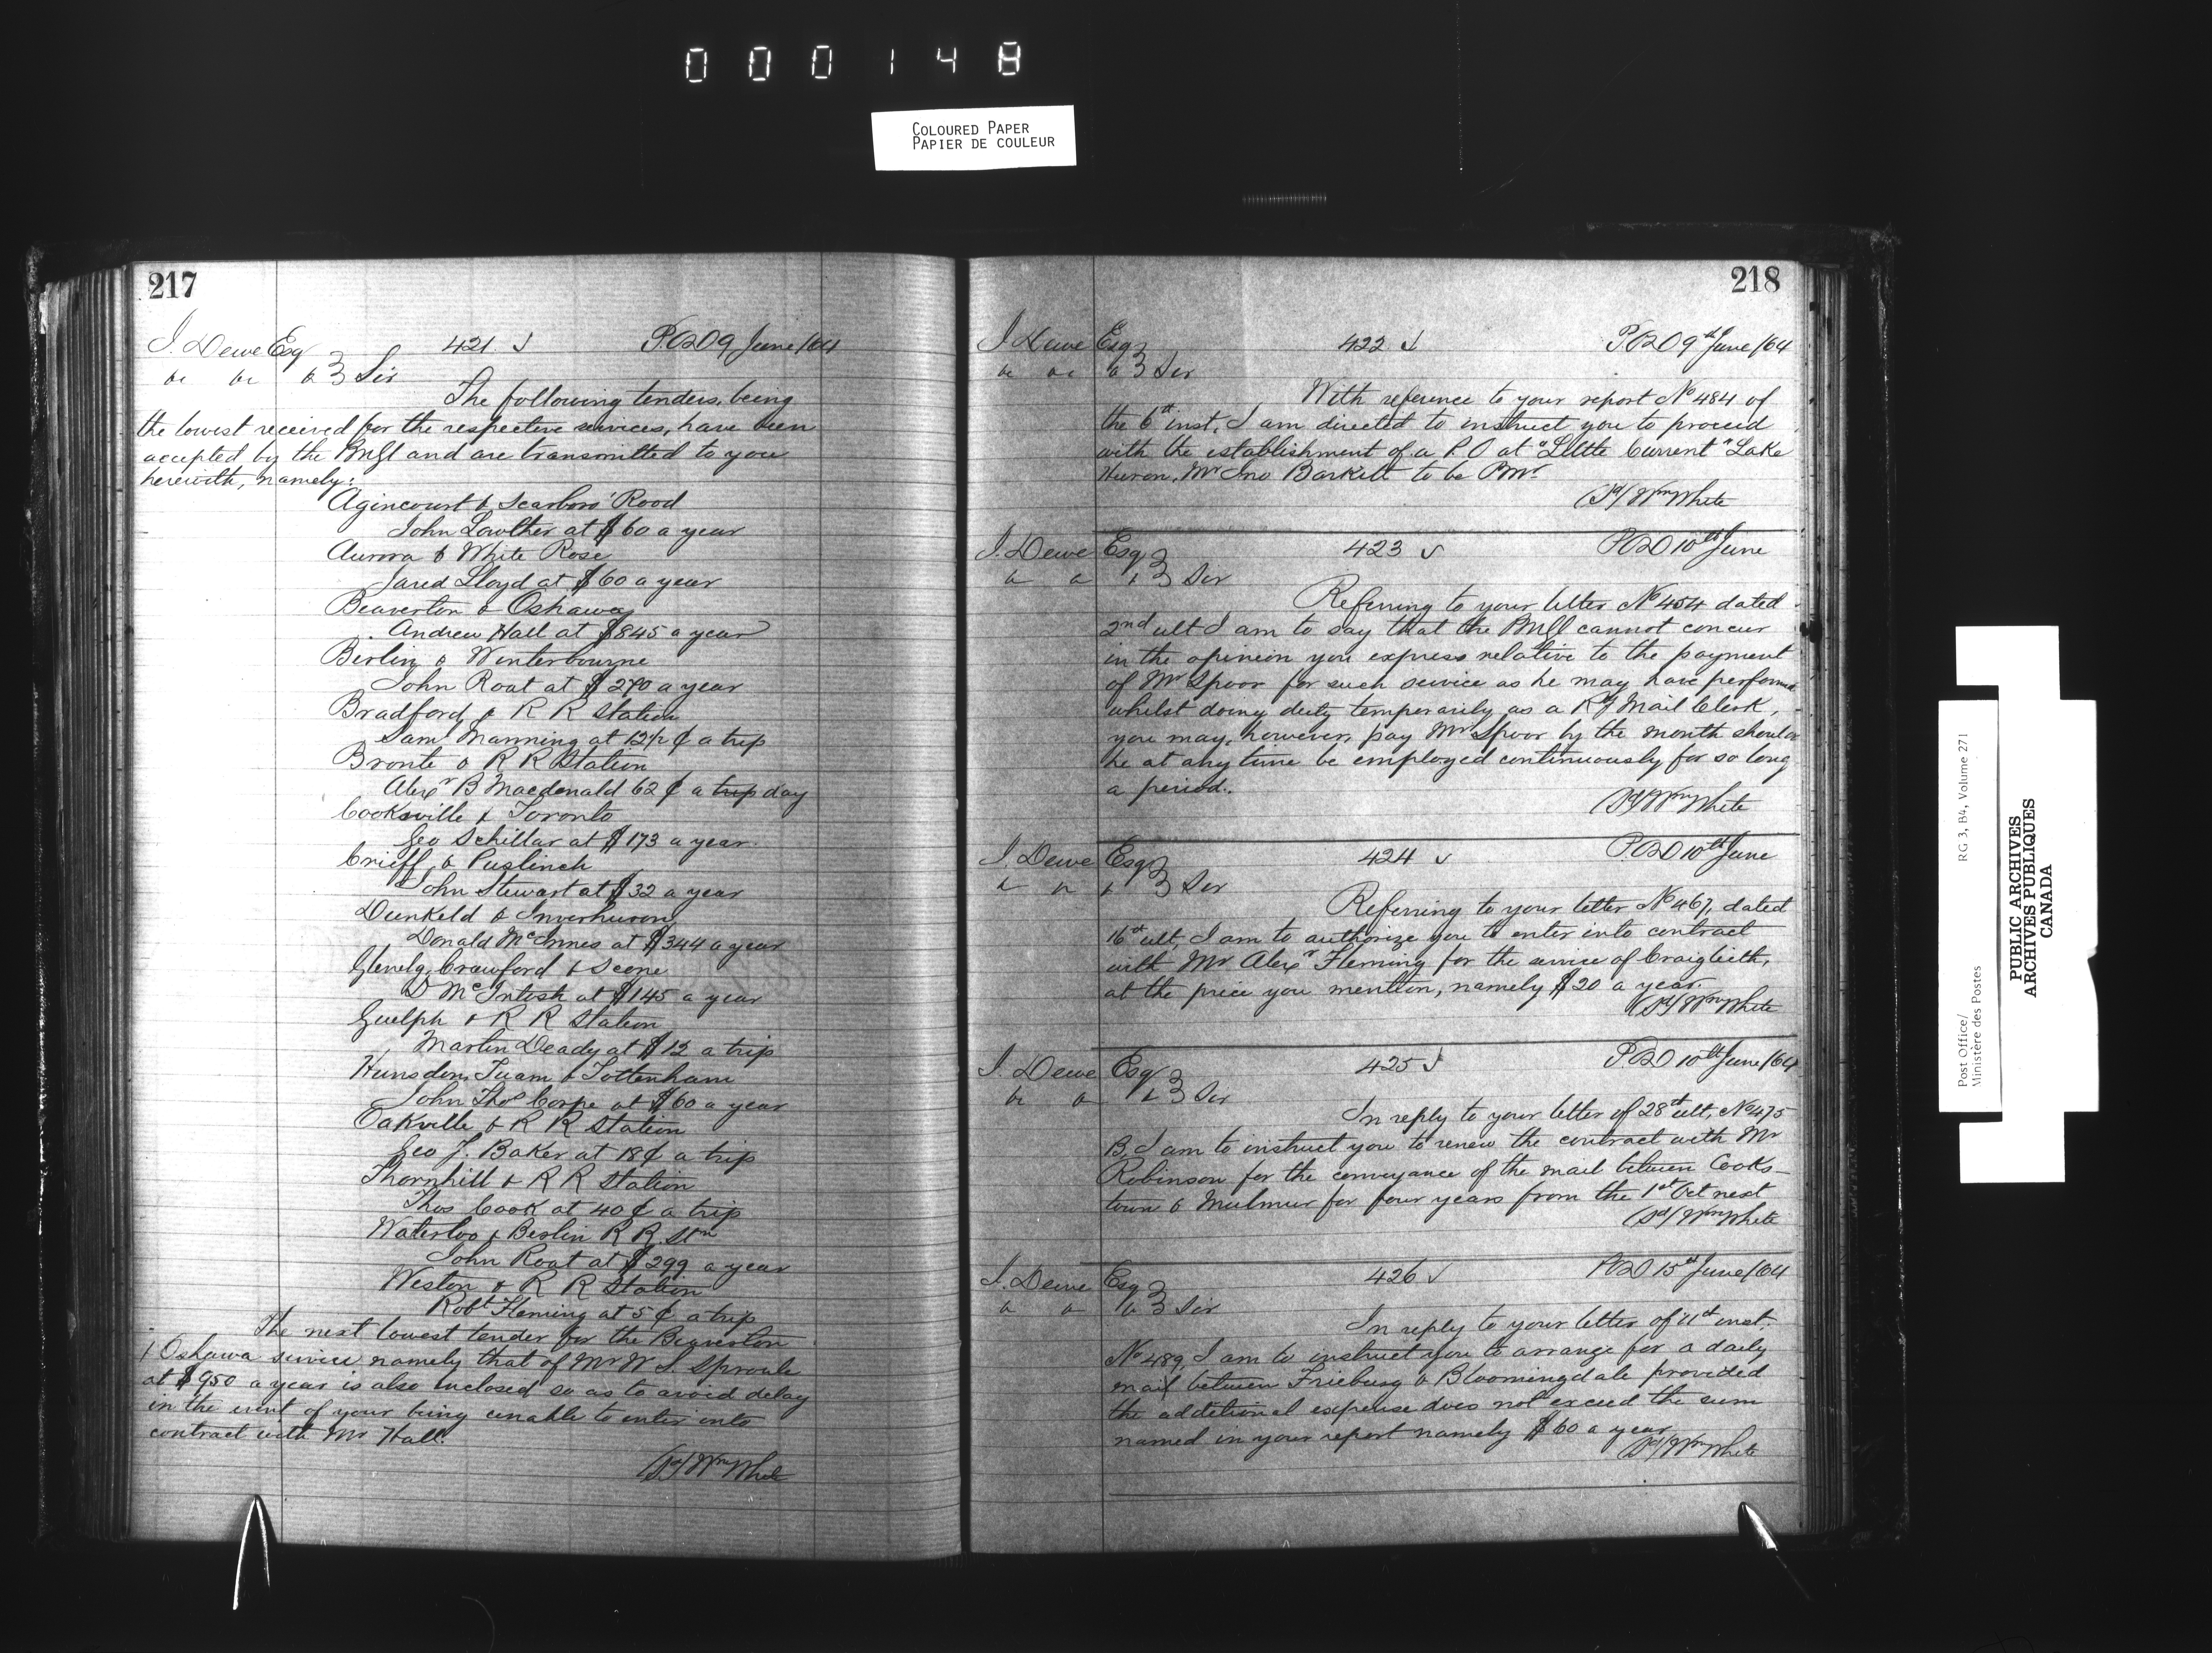 000148
COLOURED PAPER
PAPIER DE COULEUR
217
J. Dewe Esq 421 P.O.D 9 June/64
&c &c &c Sir
The following tenders, being
the lowest received for the respective services, have been
accepted by the PMGl and are transmitted to you
herewith, namely:
Agincourt & Scarboro' Road
John Lowther at $60 a year
Aurora & White Rose
Jared Lloyd at $60 a year
Beaverton & Oshawa
Andrew Hall at $845 a year
Berlin & Winterbourne
John Roat at $270 a year
Bradford & R R Station
Saml Manning at 12 1/2 ¢ a trip
Bronte & R R Station
Alexr B Macdonald 62 ¢ a trip day
Cooksville & Toronto
Geo Schillar at $173 a year.
Crieff & Puslinch
John Stewart at $32 a year
Dunkeld & Inverhuron
Donald McInnes at $344 a year
Glenelg, Crawford & Scone
D McIntosh at $145 a year
Guelph & R R Station
Martin Deady at $12 a trip
Hunsdon, Tuam & Tottenham
John Thos Corpe at $60 a year
Oakville & R R Station
Geo J. Baker at 18¢ a trip
Thornhill & R R Station
Thos Cook at 40 ¢ a trip
Waterloo & Berlin R R. Stn
John Roat at $299 a year
Weston & R R Station
Robt Fleming at 5 ¢ a trip
The next lowest tender for the Beaverton
& Oshawa service namely that of Mr W. S. Sproule
at $950 a year is also inclosed so as to avoid delay
in the event of your being unable to enter into
contract with Mr Hall.
(Sd/ Wm White
218
J. Dewe Esq 422 P.O.D 9th June/64
&c &c &c Sir
With reference to your report No 484 of
the 6th inst, I am directed to instruct you to proceed
with the establishment of a P.O at "Little Current" Lake
Huron, Mr Jno Barkett to be PMr
(Sd/ Wm White
J. Dewe Esq 423 P.O.D 10th June
&c &c &c Sir
Referring to your letter No 454 dated
2nd ult I am to say that the PMGl cannot concur
in the opinion you express relative to the payment
of Mr Spoor for such service as he may have performed
whilst doing duty temporarily as a Ry Mail Clerk,
you may, however, pay Mr Spoor by the month should
he at any time be employed continuously for so long
a period.
(Sd/ Wm White
J. Dewe Esq 424 P.O.D 10th June
&c &c &c Sir
Referring to your letter No 467, dated
16th ult, I am to authorize you to enter into contract
with Mr Alexr Fleming for the service of Craigleith,
at the price you mention, namely $20 a year.
(Sd/ Wm White
J. Dewe Esq 425 P.O.D 10th June/64
&c &c &c Sir
In reply to your letter of 28th ult, No 475
B, I am to instruct you to renew the contract with Mr
Robinson for the conveyance of the mail between Cooks-
town & Mulmur for four years from the 1st Oct next
(Sd/ Wm White
J. Dewe Esq 426 P.O.D 15th June/64
&c &c &c Sir
In reply to your letter of 11th inst.
No 489, I am to instruct you to arrange for a daily
mail between Frieburg & Bloomingdale provided
the additional expense does not exceed the sum
named in your report namely $60 a year
(Sd/ Wm White
Post Office/ RG 3, B4, Volume 271
Ministère des Postes
PUBLIC ARCHIVES
ARCHIVES PUBLIQUES
CANADA